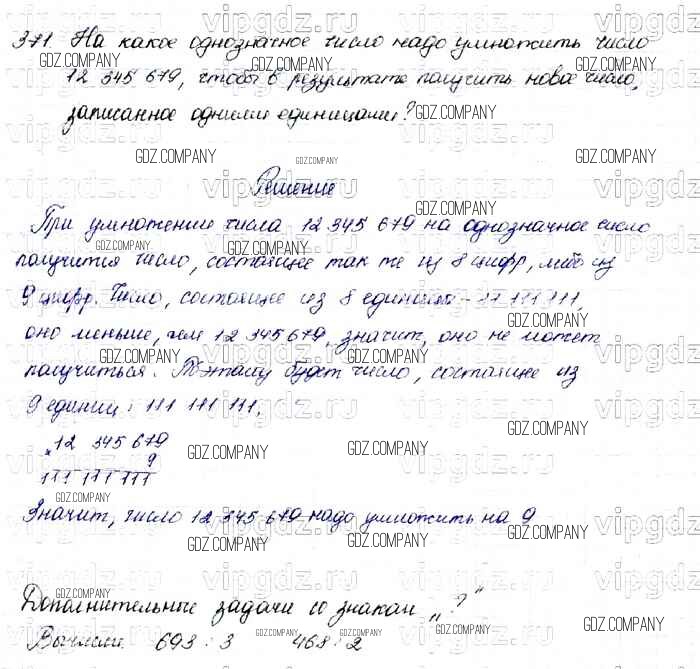 371. На какое однозначное число надо умножить число
12 345 679, чтобы в результате получить новое число,
записанное одними единицами?
Решение
При умножении числа 12 345 679 на однозначное число
получится число, состоящее так же из 8 цифр, либо из
9 цифр. Число, состоящее из 8 единиц - 11 111 111,
оно меньше, чем 12 345 679, значит, оно не может
получиться. Поэтому будет число, состоящее из
9 единиц: 111 111 111.
× 12 345 679
9
111 111 111
Значит, число 12 345 679 надо умножить на 9
Дополнительные задачи со знаком „?"
Вычисли. 693 : 3 468 : 2